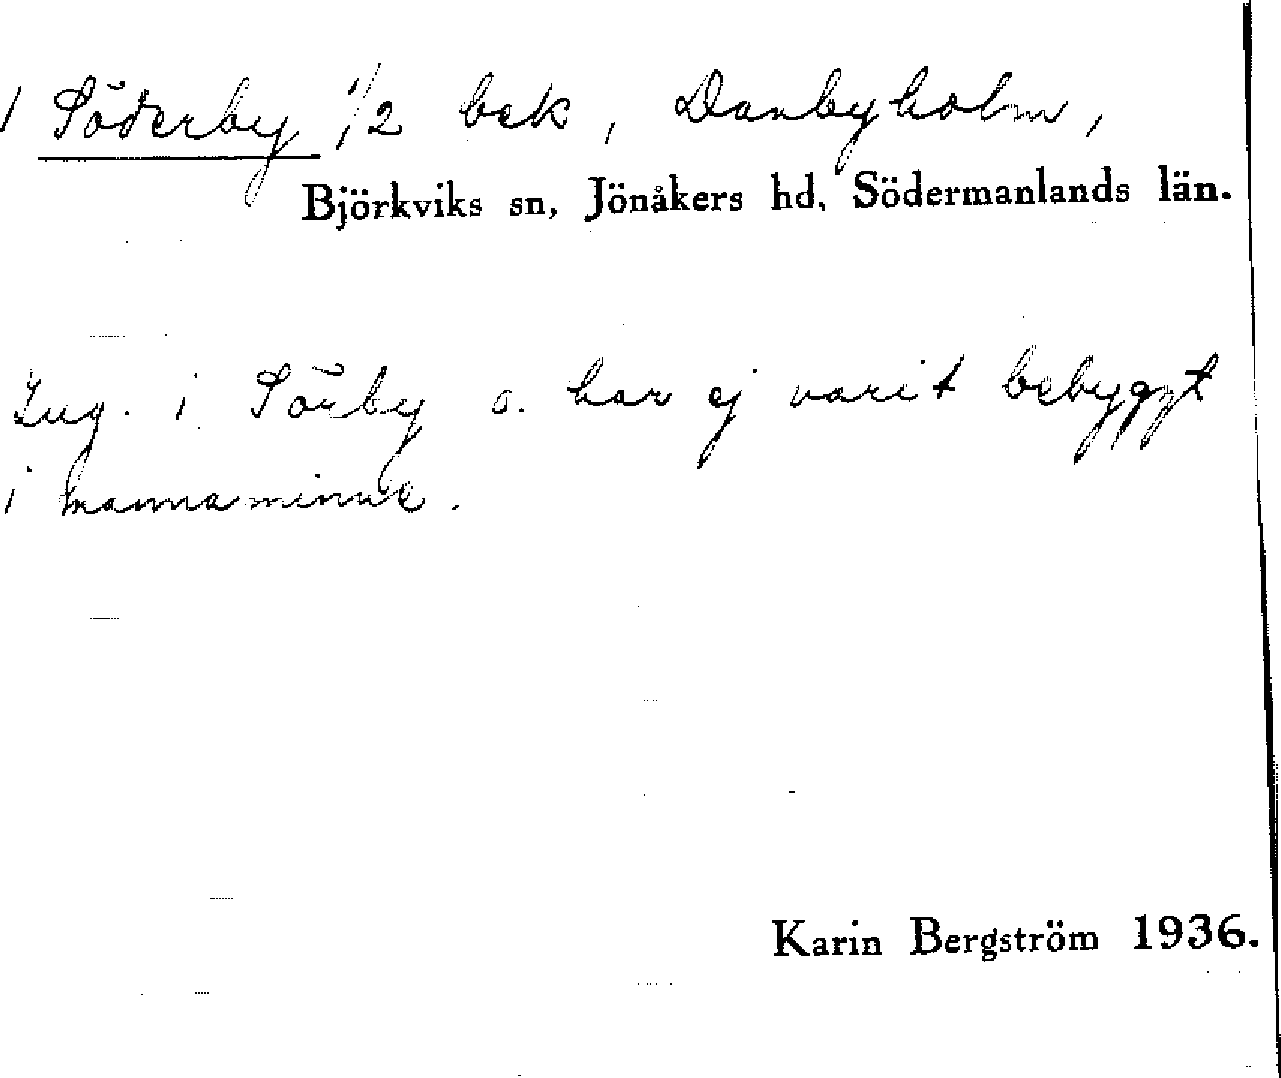 / Söderby 1/2 bek, Danbyholm,
Björkviks sn, Jönåkers hd, Södermanlands län.
Ing. i Sörby o. har ej varit bebyggt
i mannaminne.
Karin Bergström 1936.